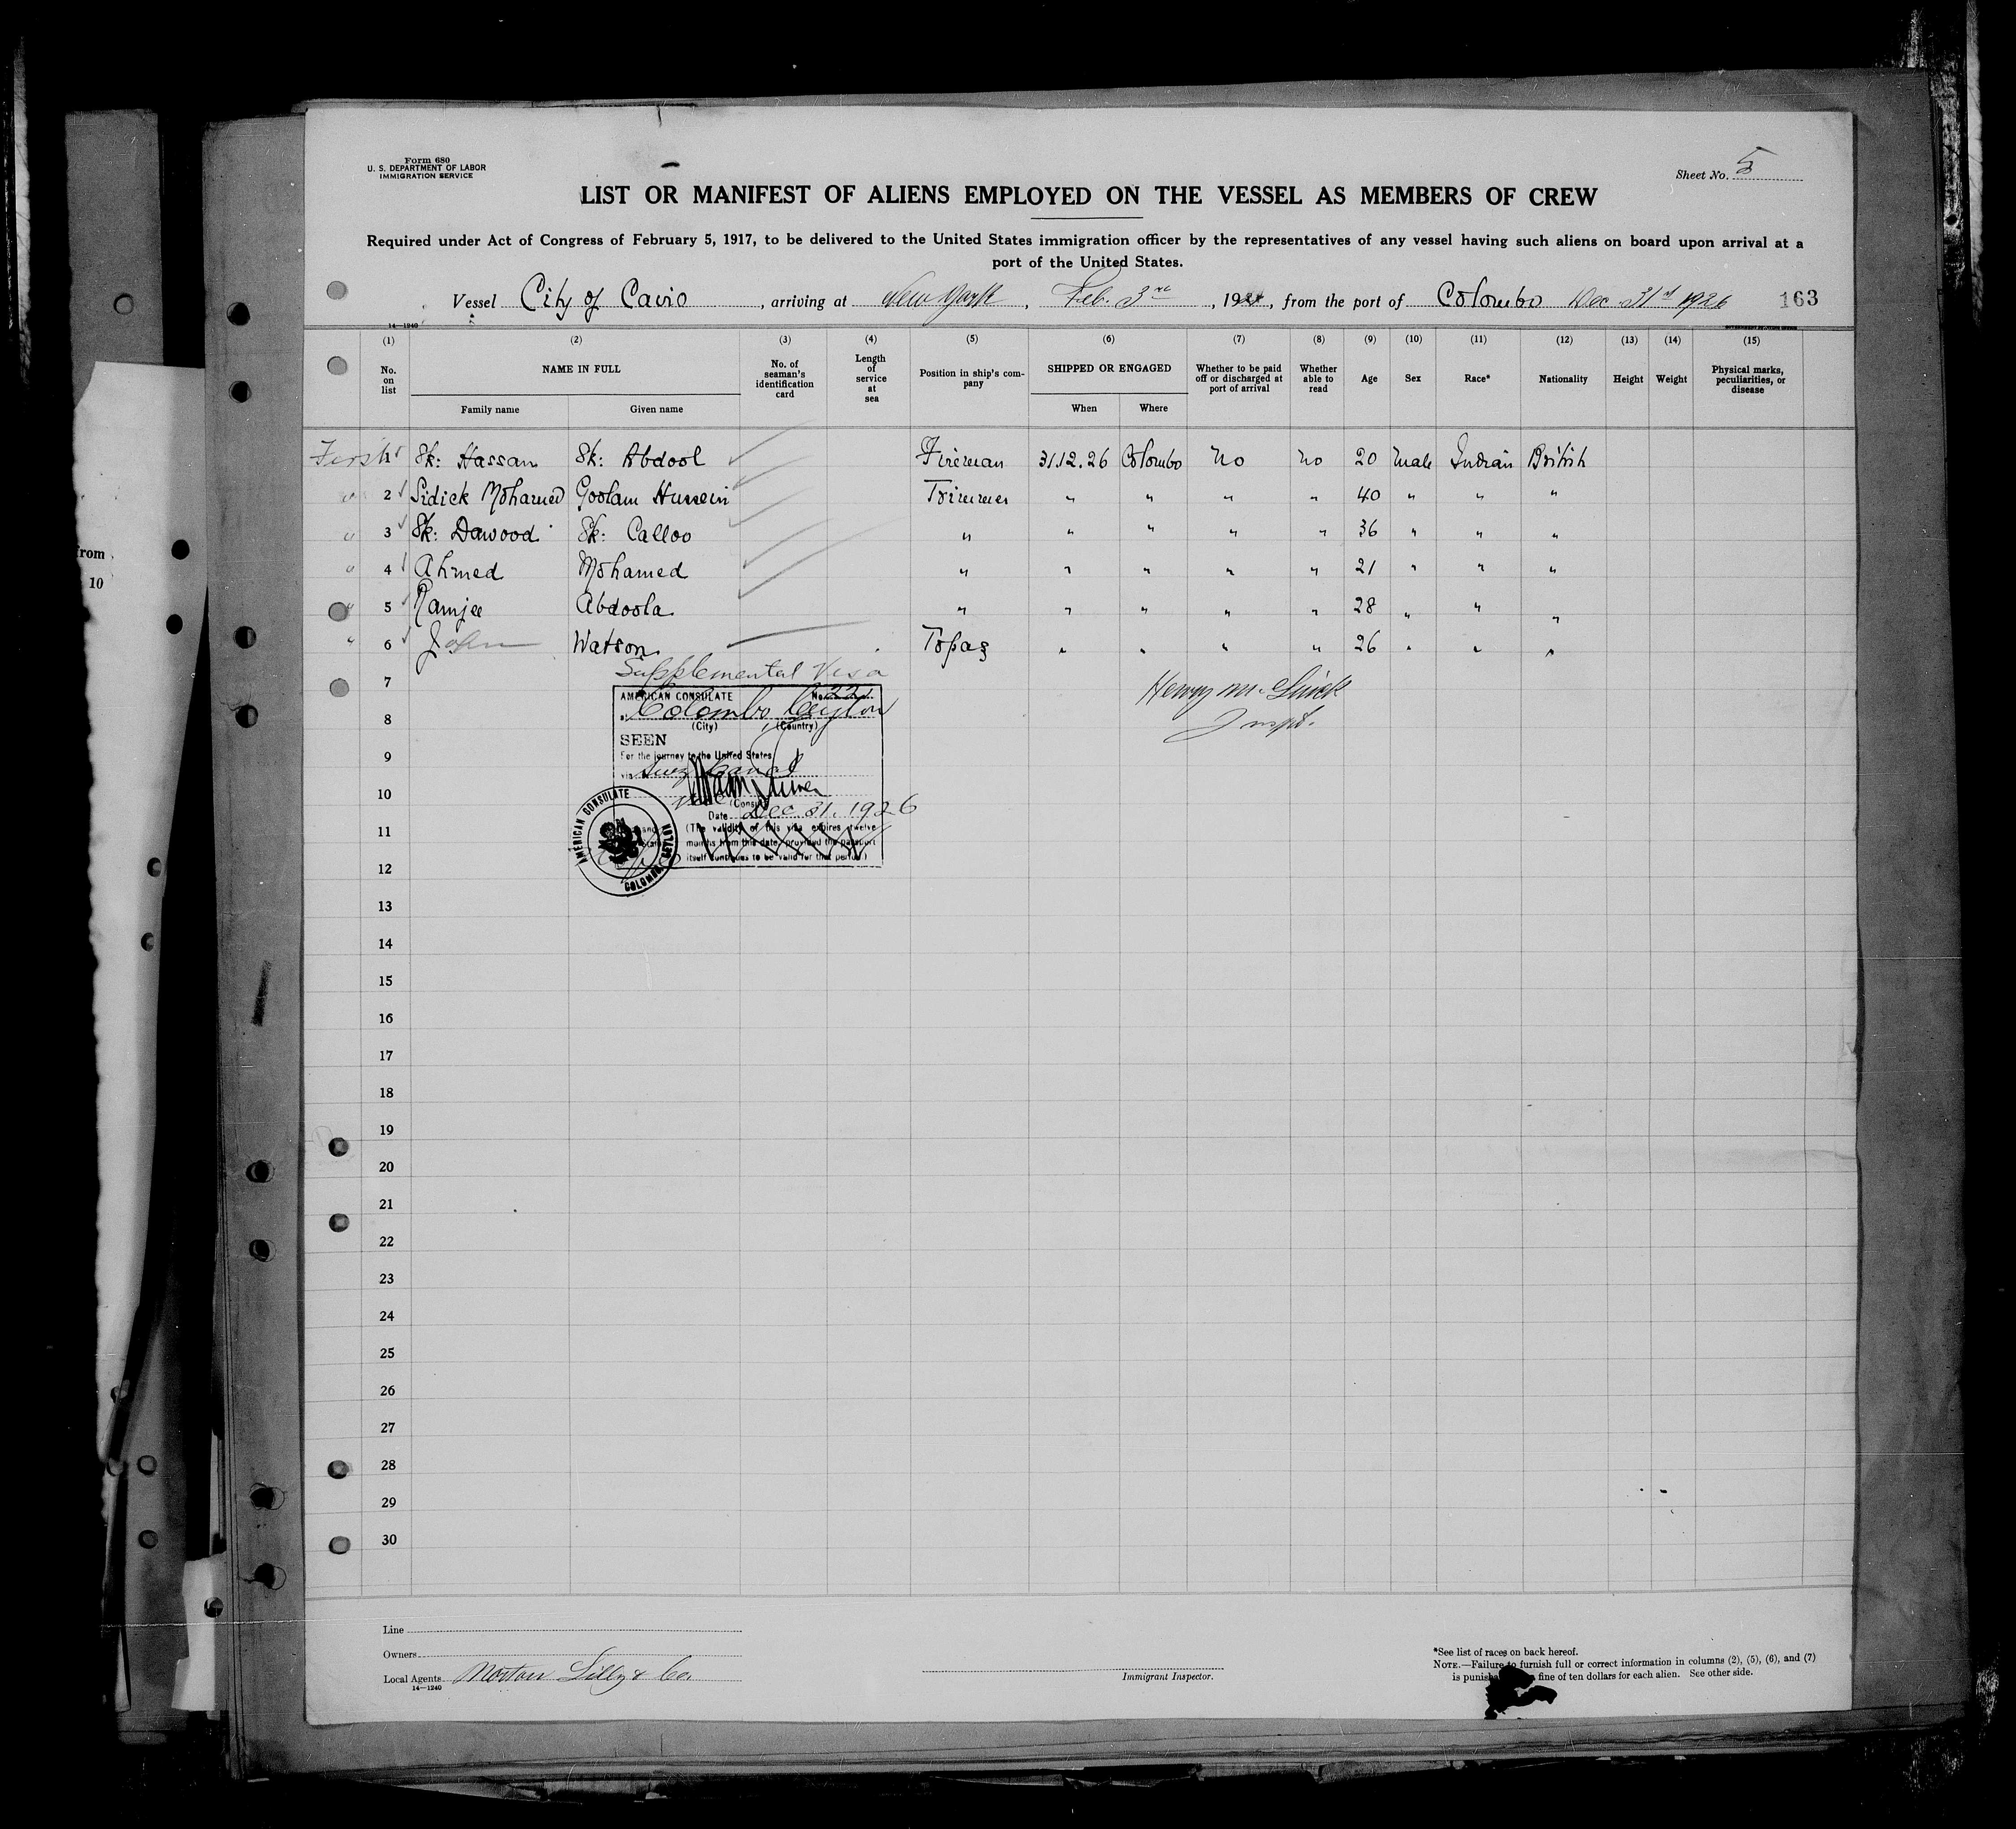 Form 680
U. S. DEPARTMENT OF LABOR
IMMIGRATION SERVICE
Sheet No. 5
LIST OR MANIFEST OF ALIENS EMPLOYED ON THE VESSEL AS MEMBERS OF CREW
Required under Act of Congress of February 5, 1917, to be delivered to the United States immigration officer by the representatives of any vessel having such aliens on board upon arrival at a
port of the United States.
Vessel City of Cairo, arriving at New York, Feb. 3rd, 192, from the port of Colombo Dec 31st 1926 163
14-1240
(1) (2) (3) (4) (5) (6) (7) (8) (9) (10) (11) (12) (13) (14) (15)
No. on list NAME IN FULL No. of seaman's identification card Length of service at sea Position in ship's company SHIPPED OR ENGAGED Whether to be paid off or discharged at port of arrival Whether able to read Age Sex Race* Nationality Height Weight Physical marks, peculiarities, or disease
Family name Given name When Where
First 1 Sk: Hassan Sk: Abdool Fireman 31.12.26 Colombo No no 20 Male Indian British
" 2 Sidick Mohamed Goolam Hussein Trimmer " " " " 40 " " "
" 3 Sk: Dawood Sk: Calloo " " " " " 36 " " "
" 4 Ahmed Mohamed " " " " " 21 " " "
" 5 Ramjee Abdoola " " " " " 28 " " "
" 6 John Watson Topaz " " " " 26 " " "
Supplemental Visa
7
Henry M.
AMERICAN CONSULATE No. 22
at Colombo Ceylon
8
Inspt.
(City) (Country)
SEEN
9
For the journey to the United States
via Suez Canal
10
(Consul)
Date Dec 31. 1926
11
(The validity of this visa expires twelve
months from this date, provided the passport
itself continues to be valid for that period.)
AMERICAN CONSULATE
COLOMBO, CEYLON
12
13
14
15
16
17
18
19
20
21
22
23
24
25
26
27
28
29
30
Line
Owners
Local Agents Norton Lilly & Co.
14-1240
Immigrant Inspector.
*See list of races on back hereof.
NOTE.—Failure to furnish full or correct information in columns (2), (5), (6), and (7)
is fine of ten dollars for each alien. See other side.
from
10